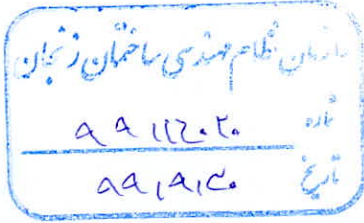 سازمان نظام مهندسی ساختمان زنجان
شماره
تاریخ ۹۹/۹/۳۰